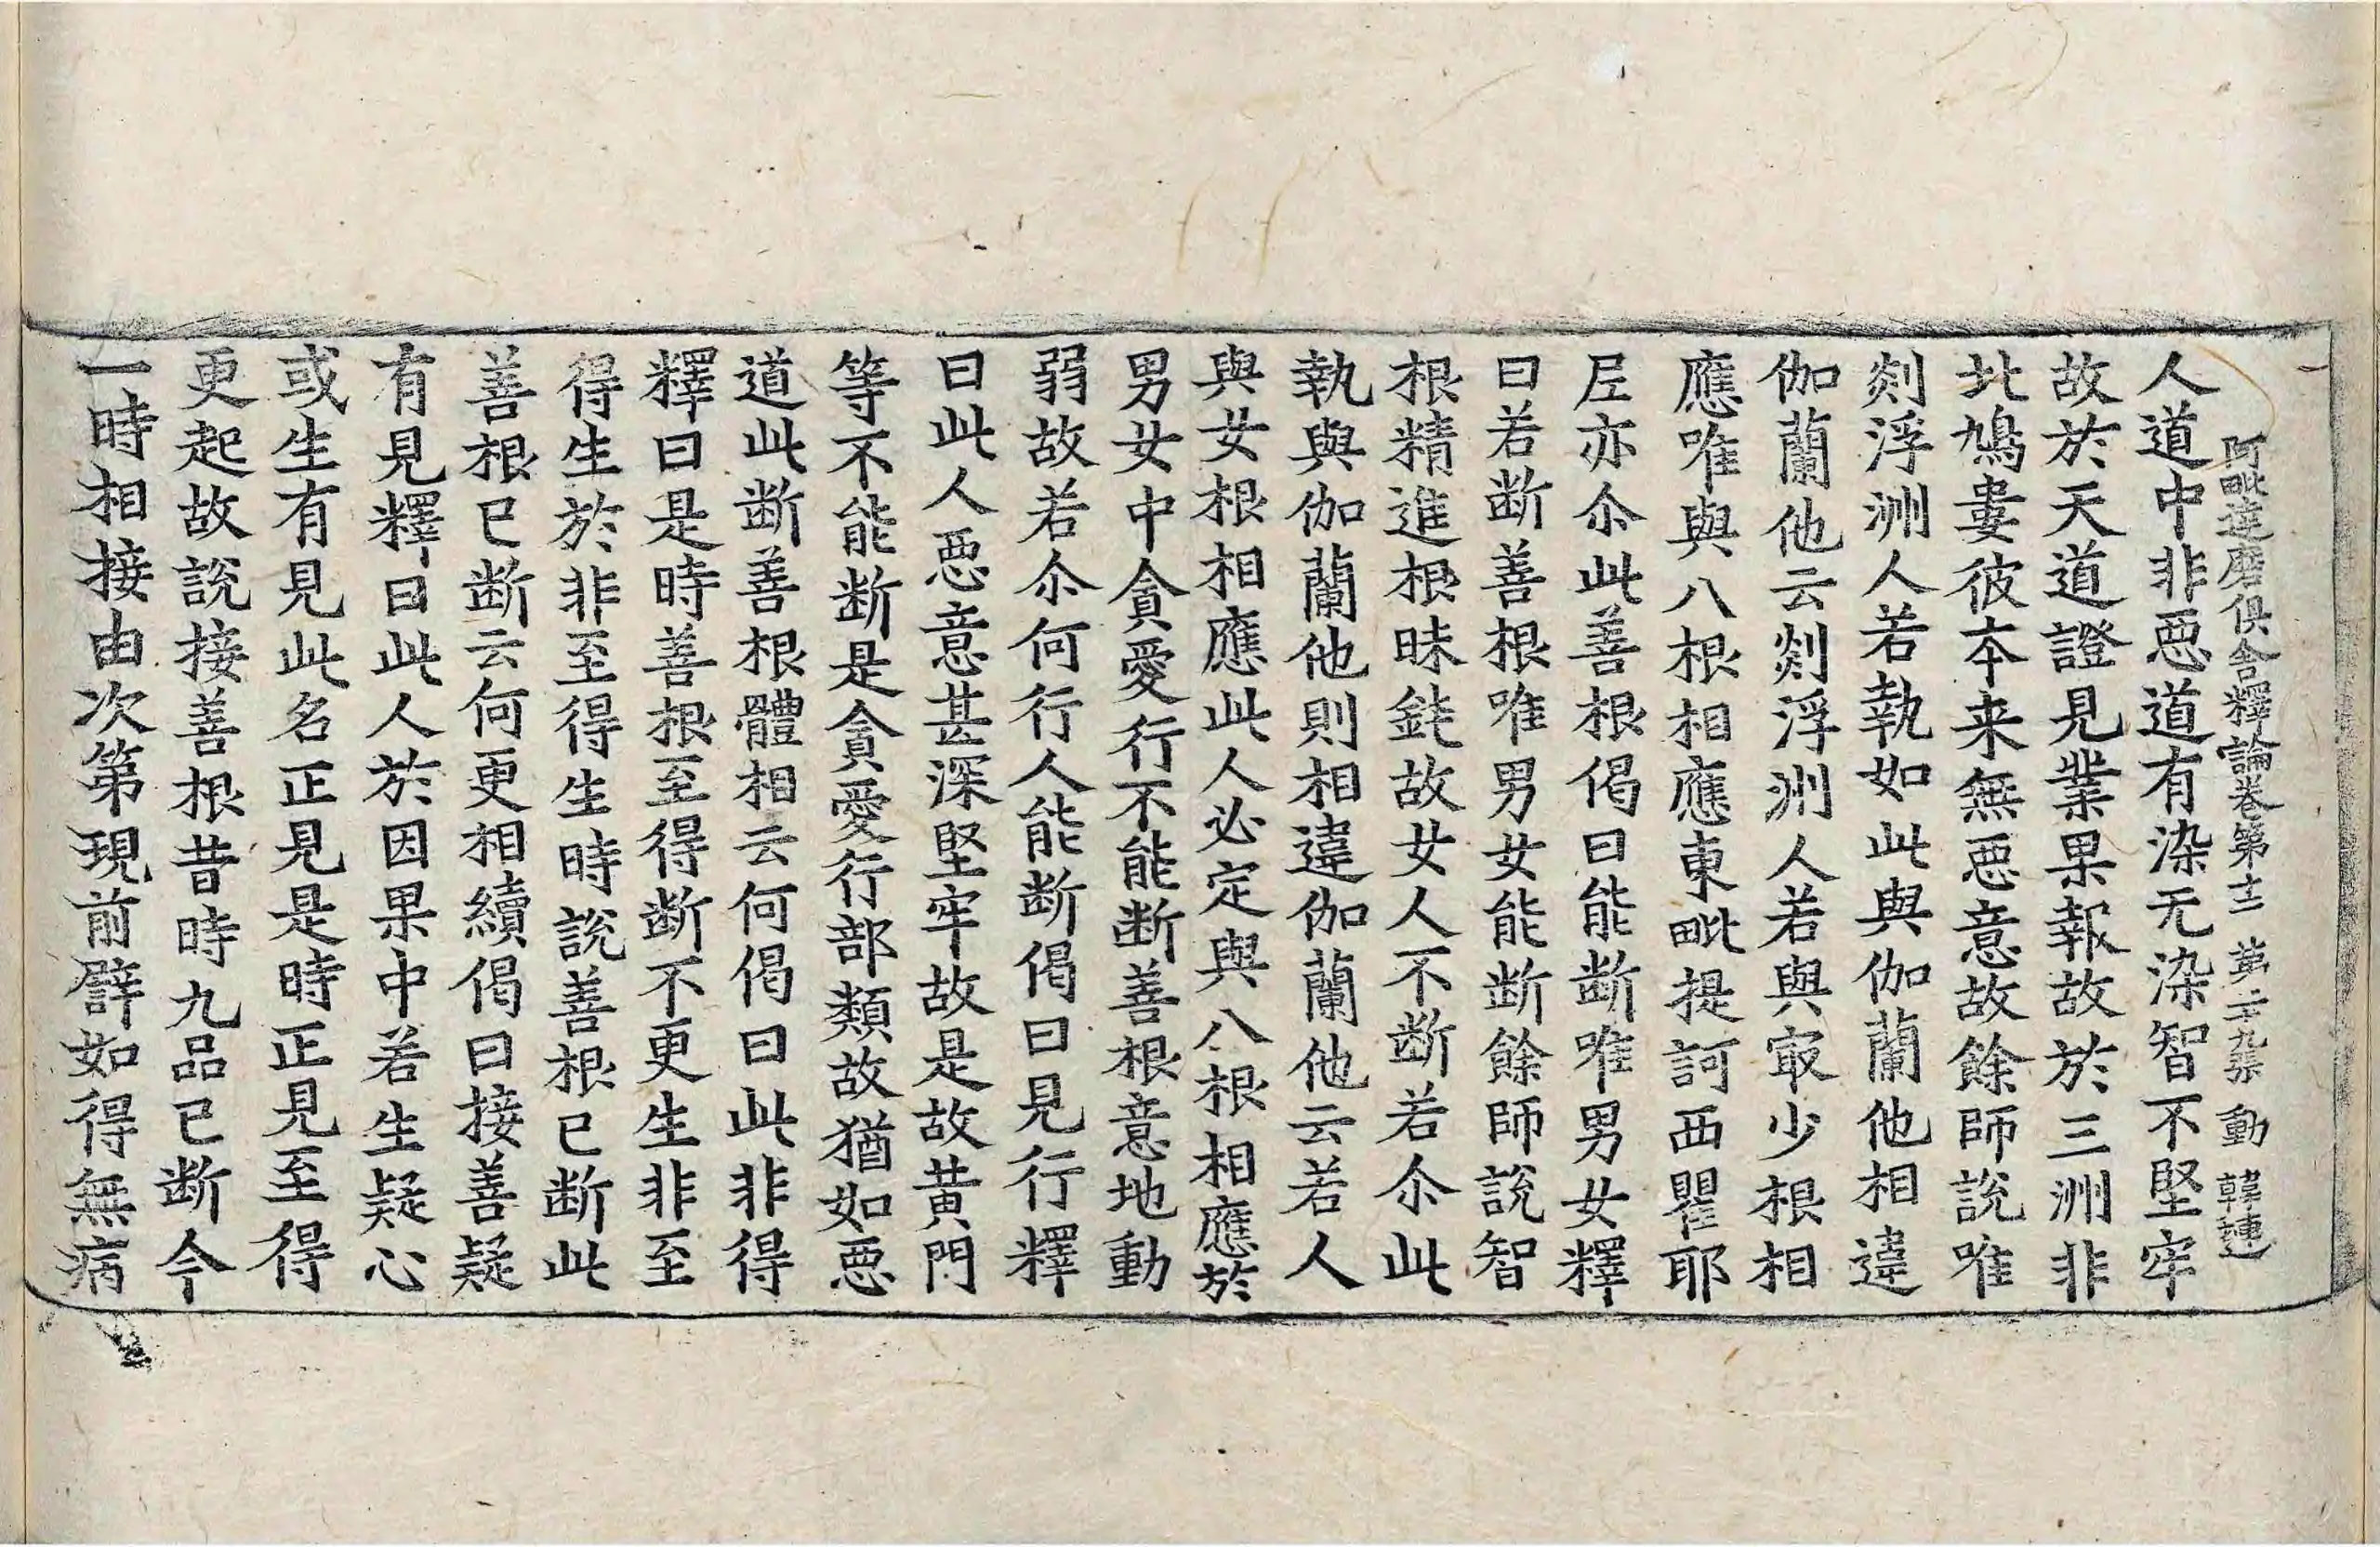 阿毗達磨俱舍釋論卷第十二 第二十九張 動 韓連
人道中非惡道有染无染智不堅牢
故於天道證見業果報故於三洲非
北鳩婁彼本来無惡意故餘師說唯
剡浮洲人若執如此與伽蘭他相違
伽蘭他云剡浮洲人若與㝡少根相
應唯與八根相應東毗提訶西瞿耶
𡰱亦尒此善根偈曰能断唯男女釋
曰若断善根唯男女能断餘師說智
根精進根昧鈍故女人不断若尒此
執與伽蘭他則相違伽蘭他云若人
與女根相應此人必定與八根相應於
男女中貪愛行不能断善根意地動
弱故若尒何行人能断偈曰見行釋
曰此人惡意甚深堅牢故是故黃門
等不能断是貪愛行部類故猶如惡
道此断善根體相云何偈曰此非得
釋曰是時善根至得断不更生非至
得生於非至得生時說善根已断此
善根已断云何更相續偈曰接善疑
有見釋曰此人於因果中若生疑心
或生有見此名正見是時正見至得
更起故說接善根昔時九品已断今
一時相接由次第現前譬如得無病